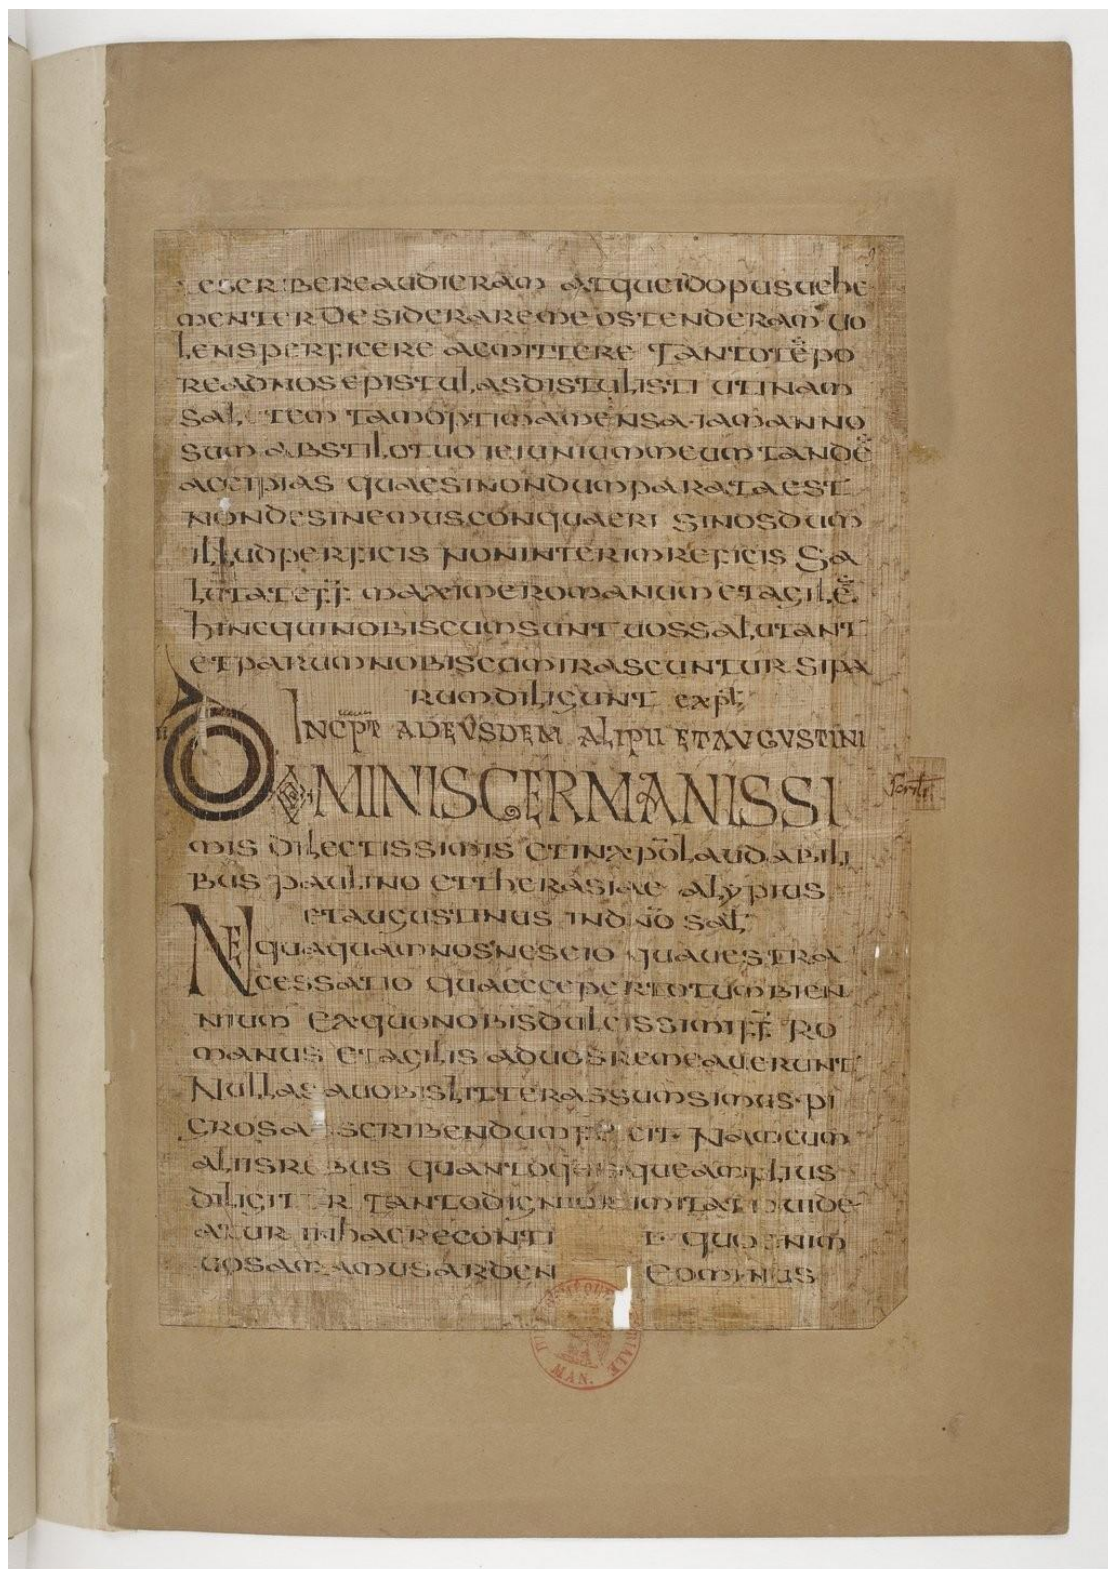 escribere audieram atque id opus uehe
menter desiderare me ostenderam uo
lens perficere ac mittere tanto tēpo
re ad nos epistulas distulisti utinam
salutem tam optimam mensa · iam anno
sum abs tilo tuo ieiunium meum tandē
accipias quae si nondum parata est
non desinemus conquaeri si nos dum
illud perficis non interim reficis Sa
lutate f̄f̄ maxime romanum et agilē
hinc qui nobiscum sunt uos salutant
et parum nobiscum irascuntur si pa
rum diligunt expl̄
INCPT AD EVSDEM ALIPII ET AVGVSTINI
DOMINIS GERMANISSI
mis dilectissimis et in xp̄o laudabili
bus paulino et therasiae alypius
et augustinus in dn̄o sal̄
NEquaquam nos nescio qua uestra
cessatio quae ecce per totum bien
nium ex quo nobis dulcissimi f̄f̄ Ro
manus et agilis ad uos remeauerunt
Nullas a uobis litteras sumsimus · pi
gros a scribendum cit · Nam cum
aliis rebus quanto quisque amplius
diligit r tanto dignior imitatio uide
atur in hac re conti quo enim
uos amamus arden eo minus
MAN.